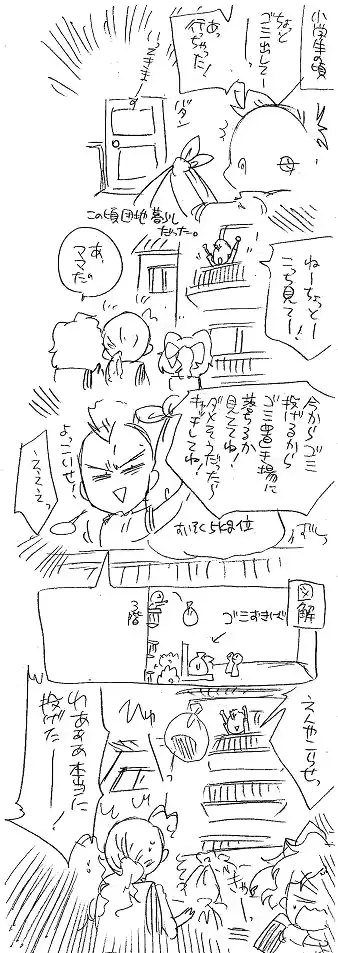 小学生の頃
ちょっと
ゴミ出して
あっ
行ちゃった!
いってきまーす
バター
この頃団地暮らし
だった。
ねーちょっとー
こっち見てー!
あ、
ママ
だ。
今からゴミ
投げるから
ゴミ置き場に
落ちるか
見ててね!
ダメそうだったら
キャッチしてね!
よっこいせ!
えええっ
図解
ゴミおきば
3階
えんやこらせっ
ひゅっ
わあああ本当に
投げた!